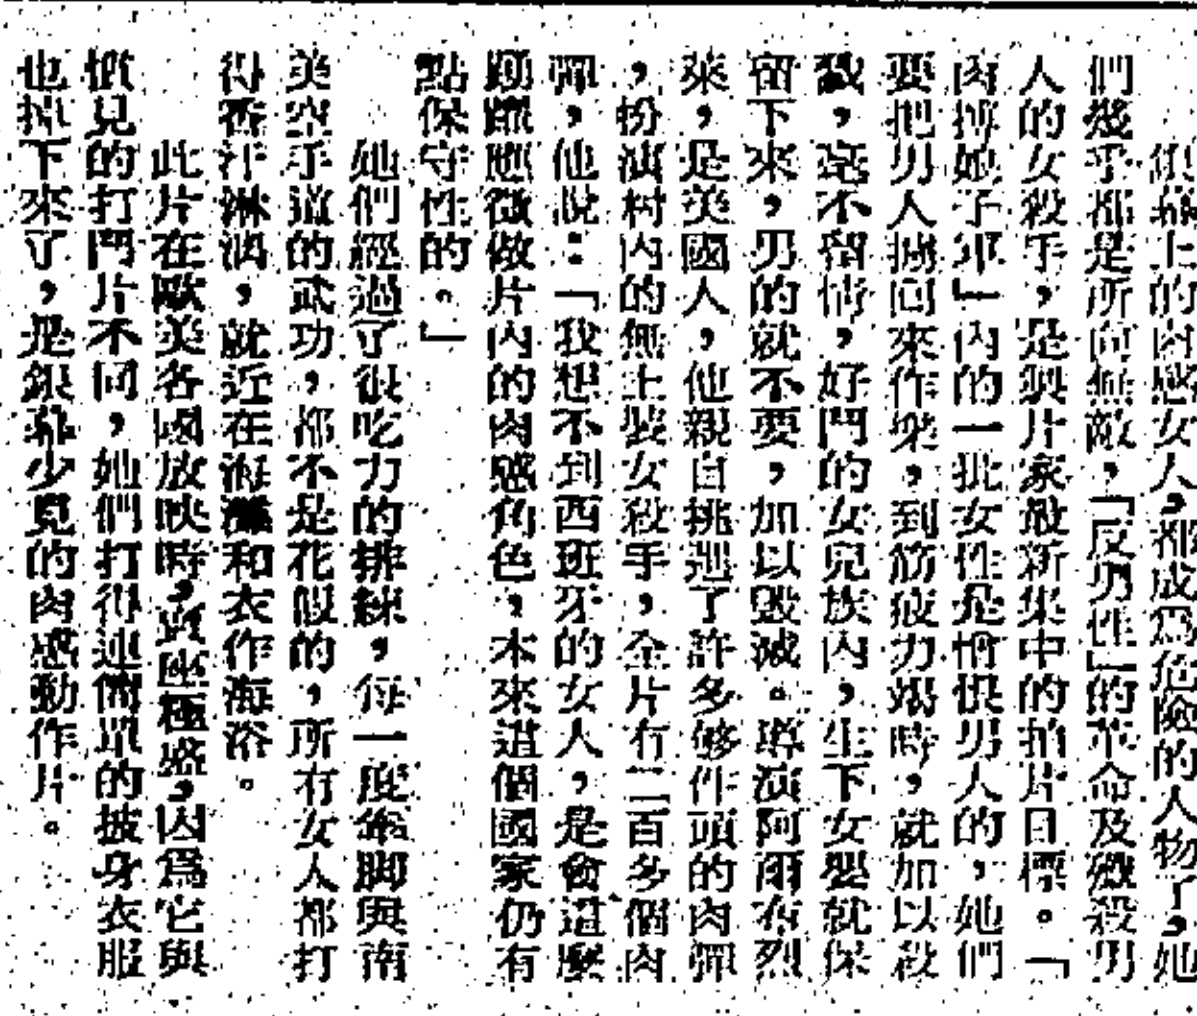 銀幕上的肉感女人,都成爲危險的人物了,她
們幾乎都是所向無敵,「反男性」的革命及殲殺男
人的女殺手,是製片家最新集中的拍片目標。「
肉搏娘子軍」內的一批女性是憎恨男人的,她們
要把男人擄回來作樂,到筋疲力竭時,就加以殺
戮,毫不留情,好鬥的女兒族內,生下女嬰就保
留下來,男的就不要,加以毀滅。導演阿爾布烈
萊,是美國人,他親自挑選了許多夠作頭的肉彈
,扮演村內的無上裝女殺手,全片有二百多個肉
彈,他說:「我想不到西班牙的女人,是會這麼
踴躍應徵做片內的肉感角色,本來這個國家仍有
點保守性的。」
她們經過了很吃力的排練,每一度拳脚與南
美空手道的武功,都不是花假的,所有女人都打
得香汗淋漓,就近在海灘和衣作海浴。
此片在歐美各國放映時,賣座極盛,因爲它與
慣見的打鬥片不同,她們打得連簡單的披身衣服
也掉下來了,是銀幕少見的肉感動作片。